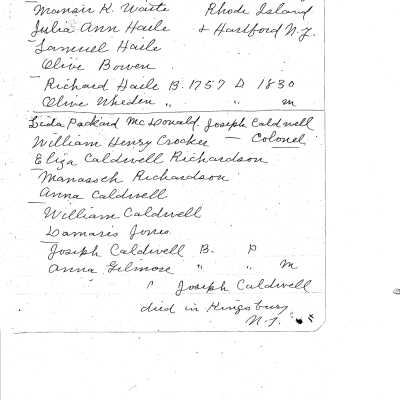 Mansir K. Waite Rhode Island
Julia Ann Haile & Hartford N.Y.
Samuel Haile
Olive Bowen
Richard Haile B. 1757 D 1830
Olive Wheden " " m
Lida Packard McDonald Joseph Caldwell
William Henry Crocker — Colonel
Eliza Caldwell Richardson
Manasseh Richardson
Anna Caldwell
William Caldwell
Damaris Jones
Joseph Caldwell B. D
Anna Gilmore " " M
Joseph Caldwell
died in Kingsbury
N.Y.